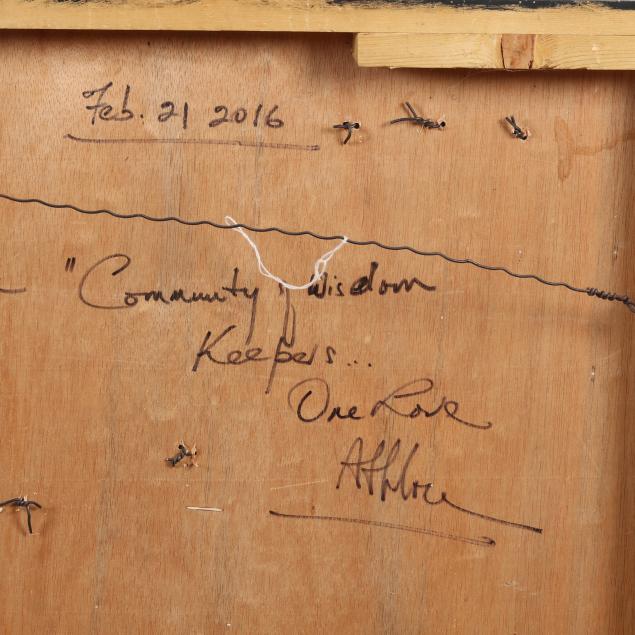 Feb. 21 2016
"Community of Wisdom
Keepers...
One Love